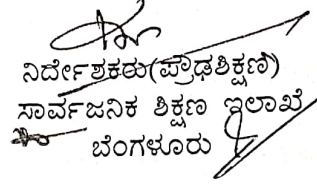 ನಿರ್ದೇಶಕರು(ಪ್ರೌಢಶಿಕ್ಷಣ)
ಸಾರ್ವಜನಿಕ ಶಿಕ್ಷಣ ಇಲಾಖೆ
ಬೆಂಗಳೂರು